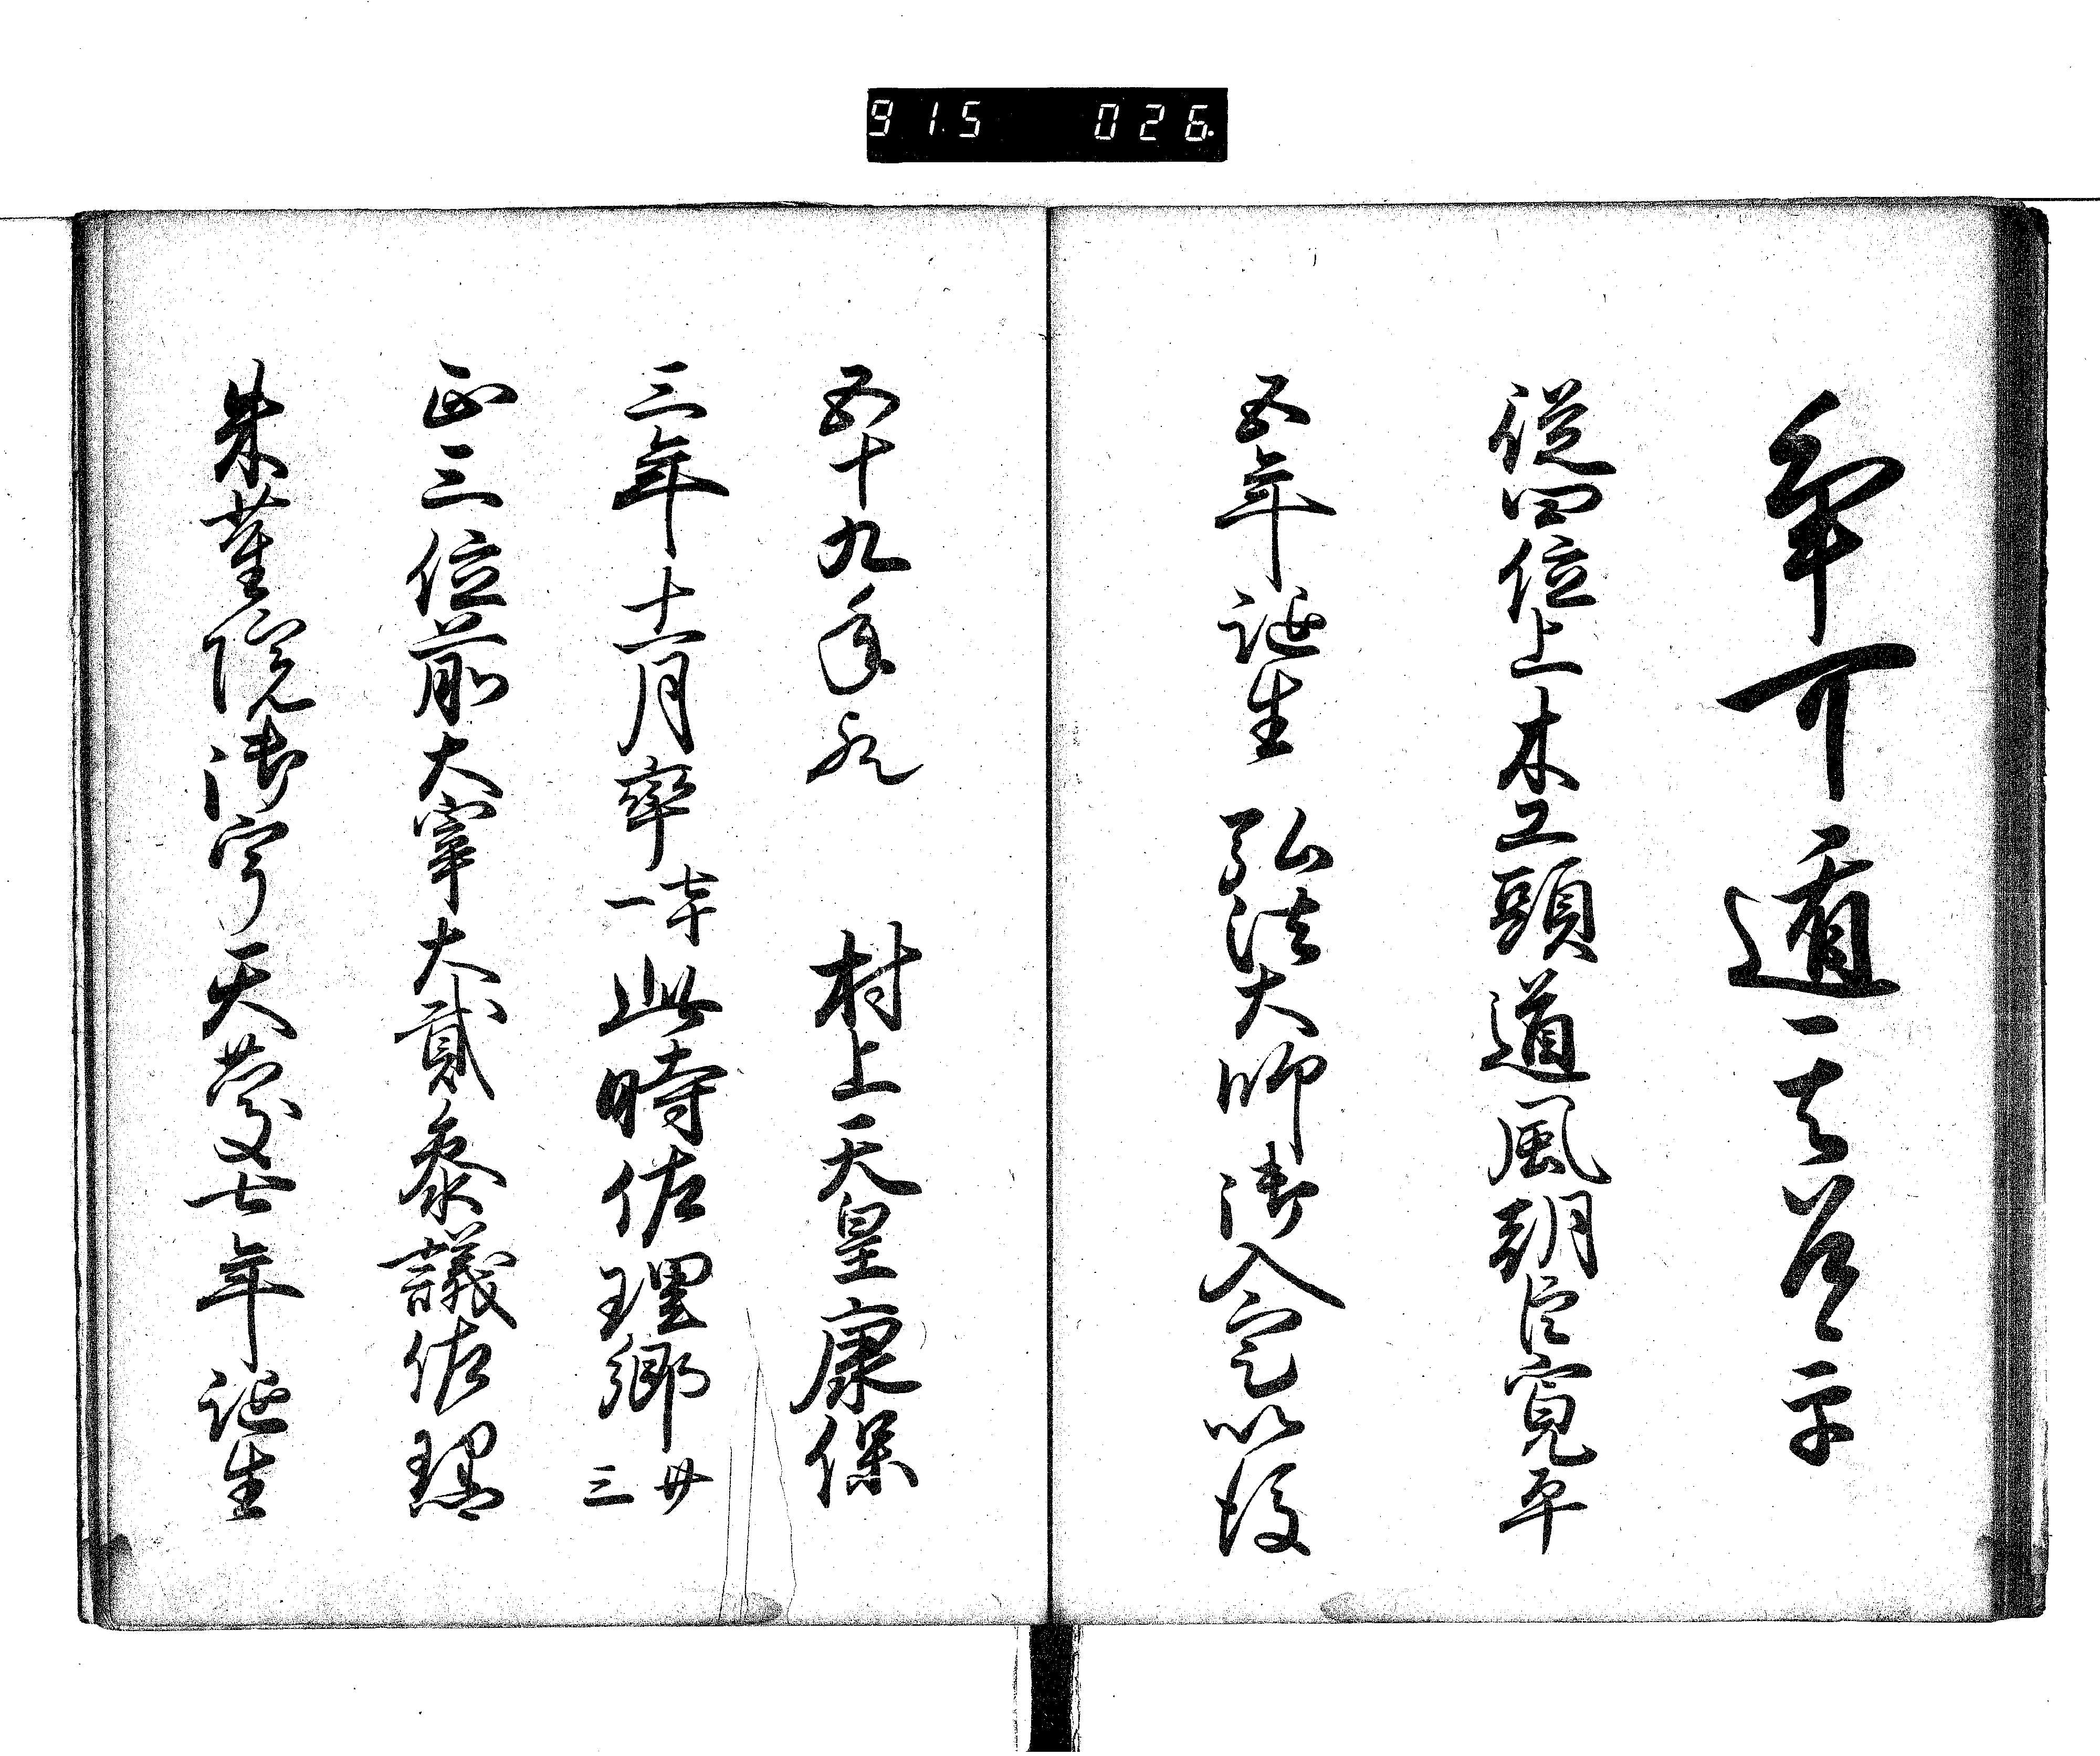 915 026
従四位上木工頭道風朝臣寛平
五年誕生 弘法大師御入定以後
五十九年欤 村上天皇康保
三年十一月卒七十一此時佐理卿廿三
正三位前大宰大貳参議佐理
朱雀院御宇天慶七年誕生